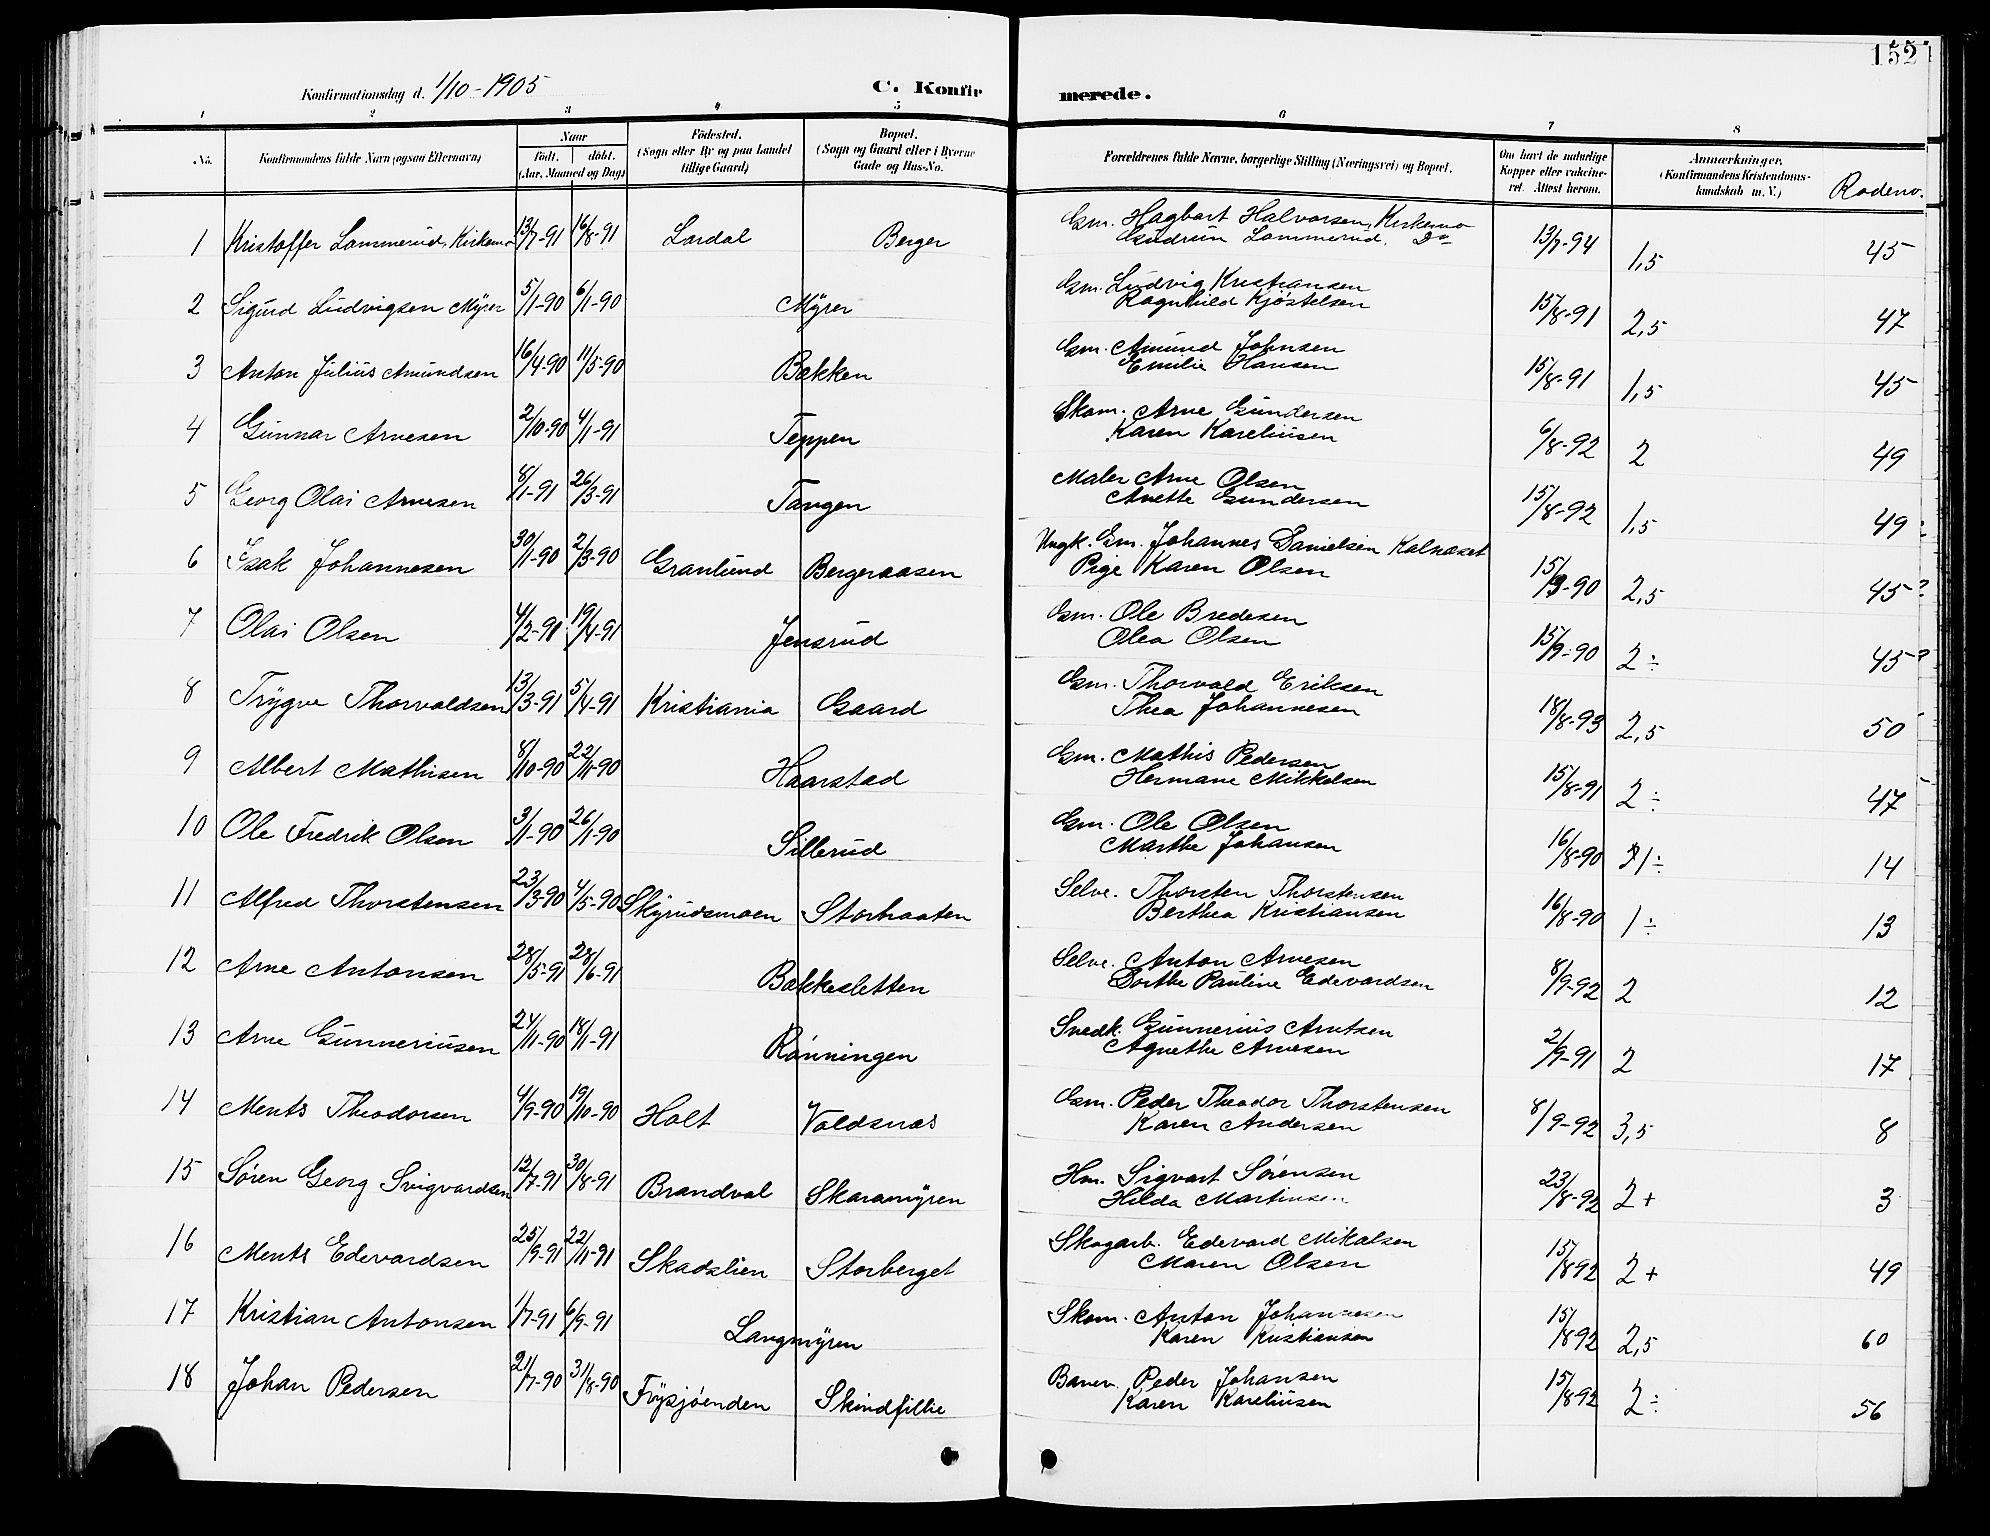 152
Konfirmationsdag d. 1/10-1905 C. Konfirmerede.
1 2 3 4 5 6 7 8
No. Konfirmandens fulde Navn (ogsaa Efternavn) Naar født. døbt. (Aar, Maaned og Dag) Födested. (Sogn eller By og paa Landet tillige Gaard) Bopæl. (Sogn og Gaard eller i Byerne Gade og Hus-No. Forældrenes fulde Navne, borgerlige Stilling (Næringsvei) og Bopæl. Om havt de naturlige Kopper eller vakcineret. Attest herom. Anmærkninger. (Konfirmandens Kristendomskundskab m. V.) Rodenv.
1 Kristoffer Lammerud, Kirkemo 13/7-91 16/8-91 Lardal Berger Gm. Hagbart Halvorsen, Kirkemo 13/7-94 1,5 45
Gudrun Lammerud, Do
2 Sigurd Ludvigsen Myrer 5/1-90 6/1-90 Myrer Gm. Ludvig Kristiansen 15/8-91 2,5 47
Ragnhild Kjøstelsen
3 Anton Julius Amundsen 16/4-90 11/5-90 Bakken Gm. Amund Johnsen 15/8-91 1,5 45
Emilie Hansen
4 Gunnar Arnesen 2/10-90 4/1-91 Teppen Skom. Arne Gundersen 6/8-92 2 49
Karen Kareliusen
5 Georg Olai Arnesen 8/1-91 26/3-91 Tangen Maler Arne Olsen 15/8-92 1,5 49
Anette Gundersen
6 Isak Johannesen 30/1-90 2/3-90 Granlund Bergeraasen Ungk. Gm. Johannes Danielsen Kalnæset 15/9-90 2,5 45?
Pige Karen Olsen
7 Olai Olsen 4/2-91 19/4-91 Jensrud Gm. Ole Bredesen 15/9-90 2÷ 45?
Olea Olsen
8 Trygve Thorvaldsen 13/3-91 5/4-91 Kristiania Gaard Gm. Thorvald Eriksen 18/8-93 2,5 50
Thea Johannesen
9 Albert Mathisen 8/10-90 22/11-90 Haarstad Gm. Mathis Pedersen 15/8-91 2÷ 47
Hermane Mikkelsen
10 Ole Fredrik Olsen 3/1-90 26/1-90 Sillerud Gm. Ole Olsen 16/8-90 1÷ 14
Marthe Johansen
11 Alfred Thorstensen 23/3-90 4/5-90 Skyrudsmoen Storhaaten Selve. Thorsten Thorstensen 16/8-90 1÷ 13
Berthea Kristiansen
12 Arne Antonsen 28/5-91 28/6-91 Bakkesletten Selve. Anton Arnesen 8/9-92 2 12
Dorthe Pauline Edevardsen
13 Arne Gunneriusen 24/11-90 18/1-91 Rønningen Snedk. Gunnerius Arntsen 2/9-91 2 17
Agnethe Arnesen
14 Ments Theodorsen 4/9-90 19/10-90 Holt Valdsnæs Gm. Peder Theodor Thorstensen 8/9-92 3,5 8
Karen Andersen
15 Søren Georg Sigvardsen 12/7-91 30/8-91 Brandval Skaramyren Hm. Sigvart Sørensen 23/8-92 2+ 3
Hilda Martinsen
16 Ments Edevardsen 25/9-91 22/11-91 Skadslien Storberget Skogarb. Edevard Mikalsen 15/8 92 2+ 49
Maren Olsen
17 Kristian Antonsen 1/7-91 6/9-91 Langmyren Skom. Anton Johannesen 15/8 92 2,5 60
Karen Kristiansen
18 Johan Pedersen 21/7-90 31/8-90 Frysjøenden Skindfillie Banev. Peder Johansen 15/8 92 2÷ 56
Karen Kareliusen